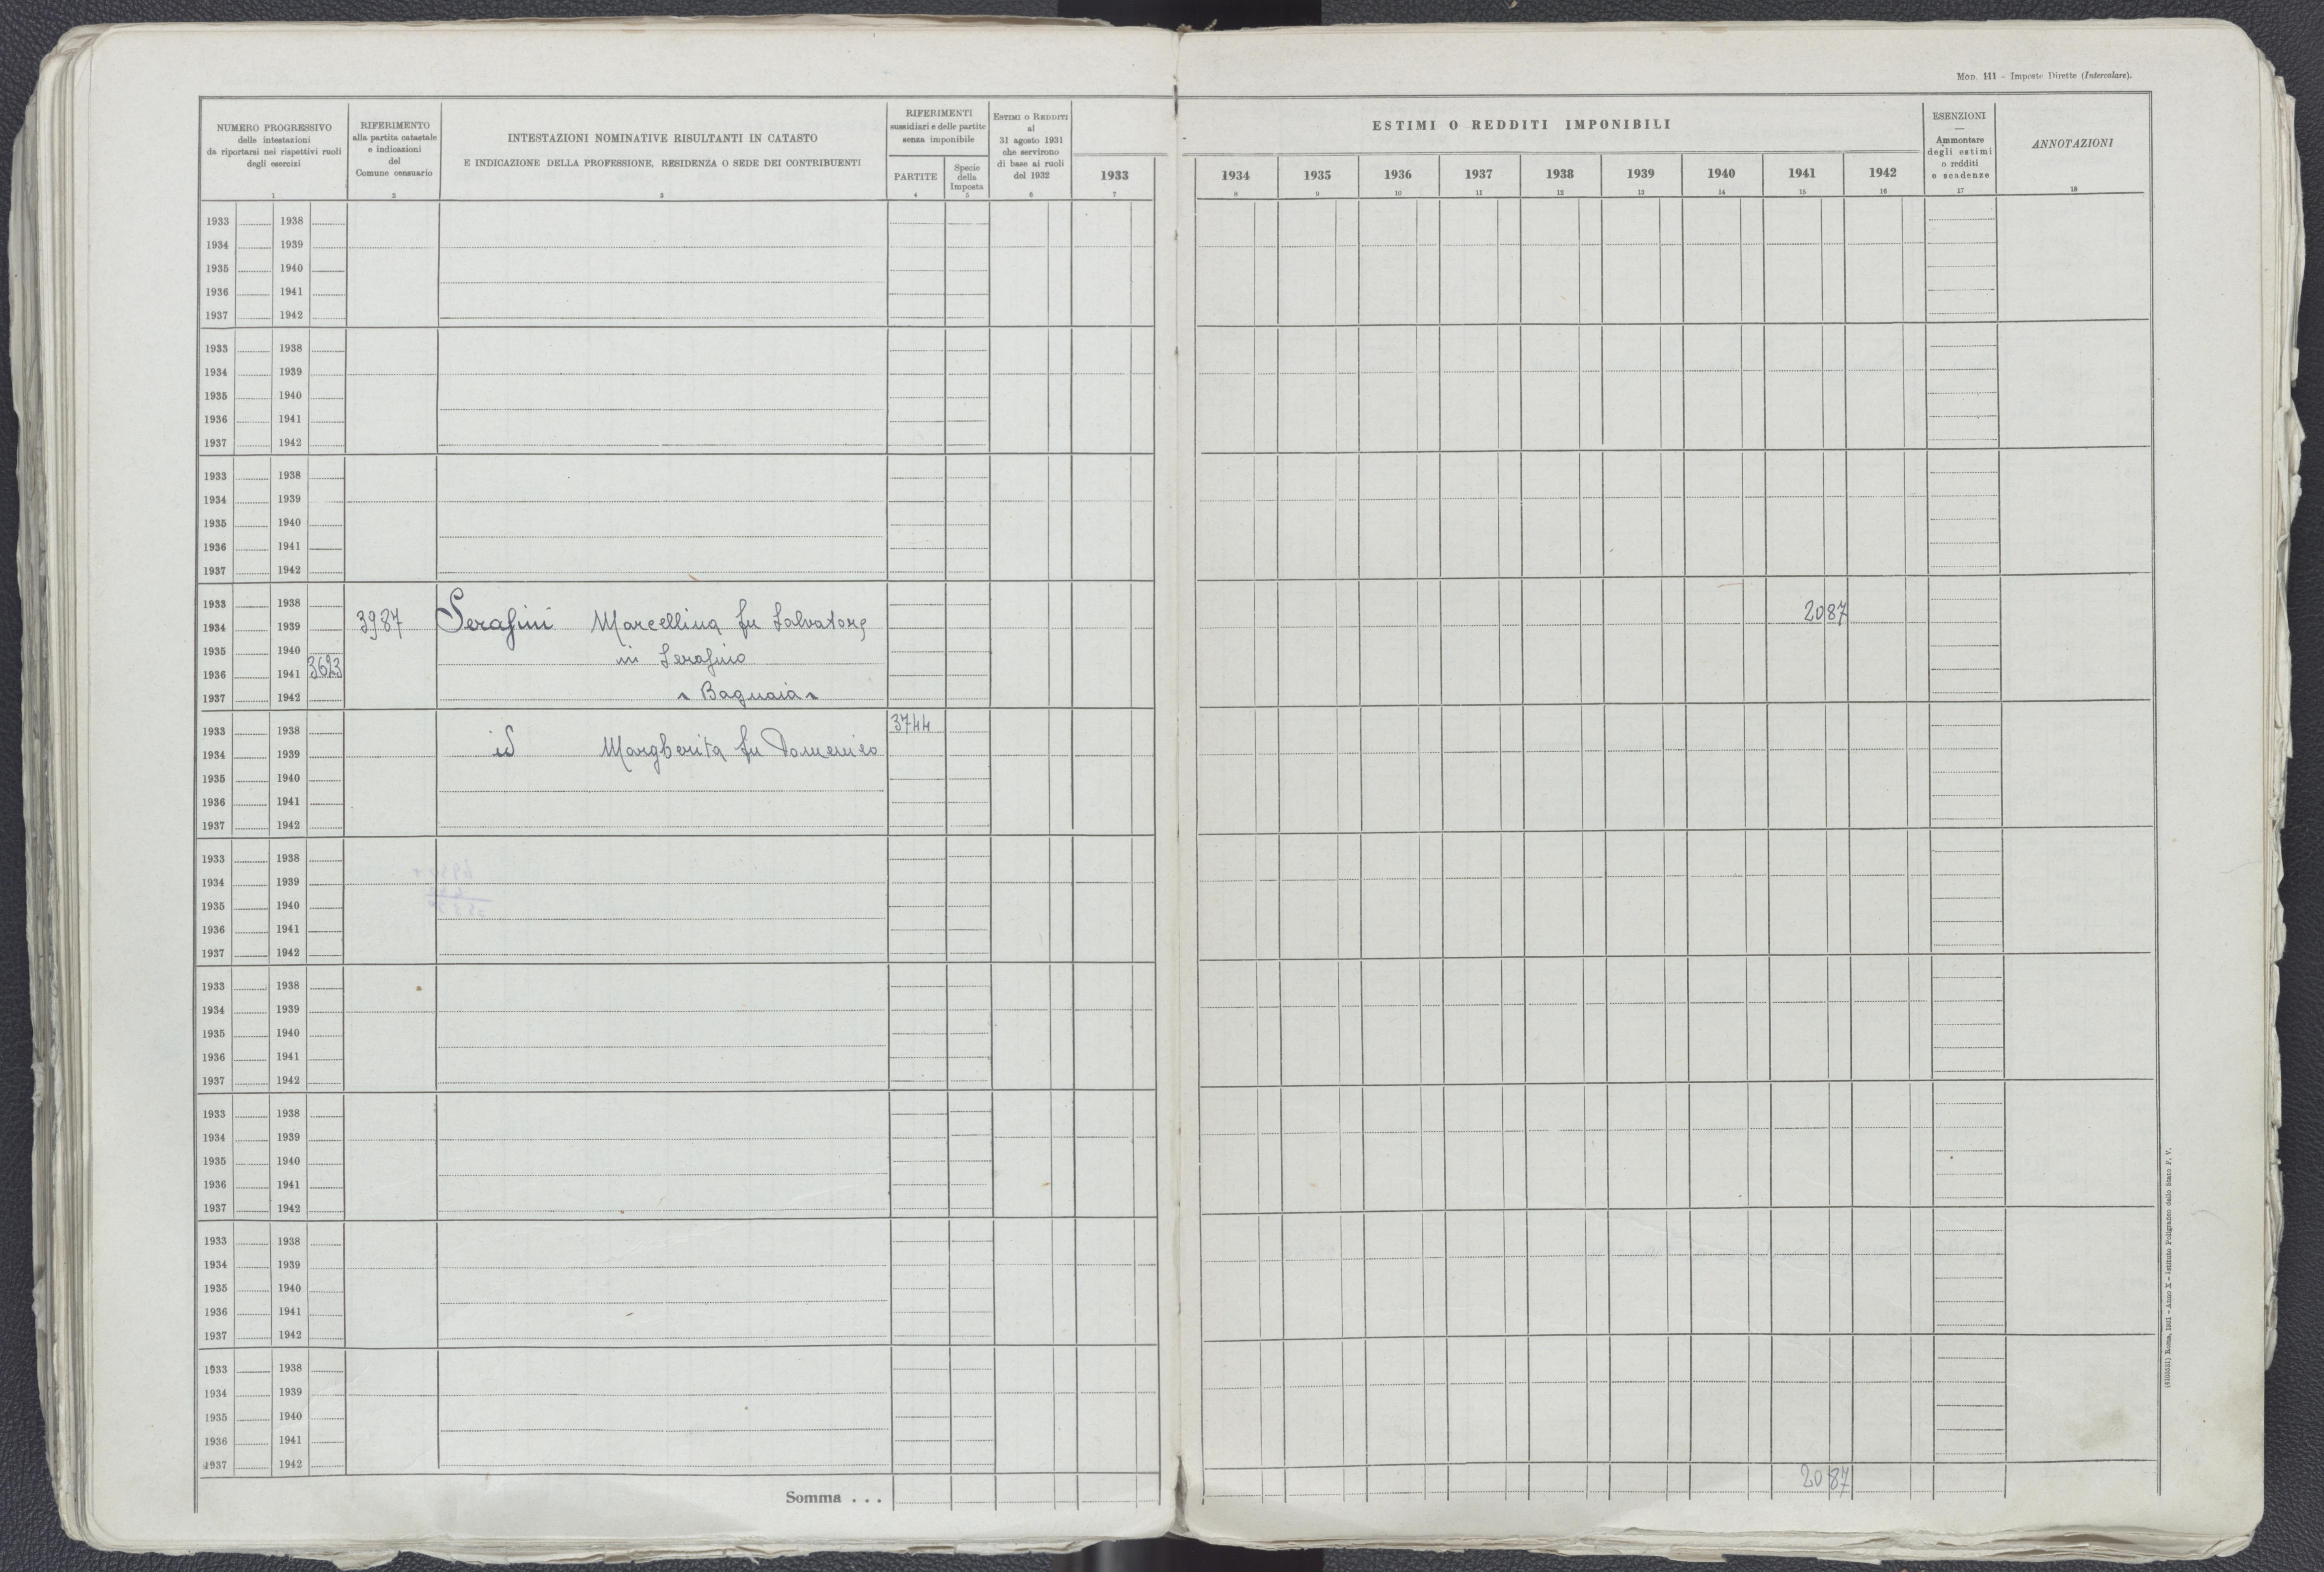 Mod. 111 - Imposte Dirette (Intercalare).
NUMERO PROGRESSIVO
delle intestazioni
da riportarsi nei rispettivi ruoli
degli esercizi
1
RIFERIMENTO
alla partita catastale
e indicazioni
del
Comune censuario
2
INTESTAZIONI NOMINATIVE RISULTANTI IN CATASTO
E INDICAZIONE DELLA PROFESSIONE, RESIDENZA O SEDE DEI CONTRIBUENTI
3
RIFERIMENTI
sussidiari e delle partite
senza imponibile
PARTITE
4
Specie
della
Imposta
5
Estimi o Redditi
al
31 agosto 1931
che servirono
di base ai ruoli
del 1932
6
ESTIMI O REDDITI IMPONIBILI
1933 1934 1935 1936 1937 1938 1939 1940 1941 1942
7 8 9 10 11 12 13 14 15 16
ESENZIONI
—
Ammontare
degli estimi
o redditi
e scadenze
17
ANNOTAZIONI
18
1933 1938
1934 1939
1935 1940
1936 1941
1937 1942
1933 1938
1934 1939
1935 1940
1936 1941
1937 1942
1933 1938
1934 1939
1935 1940
1936 1941
1937 1942
1933 1938 2087
1934 1939 3987 Serafini Marcellina fu Salvatore
1935 1940 in Serafino
1936 1941 3623
1937 1942 " Bagnaia "
1933 1938 3744
1934 1939 id Margherita fu Domenico
1935 1940
1936 1941
1937 1942
1933 1938
1934 1939
1935 1940
1936 1941
1937 1942
1933 1938
1934 1939
1935 1940
1936 1941
1937 1942
1933 1938
1934 1939
1935 1940
1936 1941
1937 1942
1933 1938
1934 1939
1935 1940
1936 1941
1937 1942
1933 1938
1934 1939
1935 1940
1936 1941
1937 1942
Somma . . . 2087
Roma, 1931 - Anno X - Istituto Poligrafico dello Stato P. V.